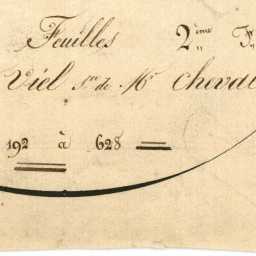 Feuilles 2ème
Viel Sr de Mr Cheval
192 à 628